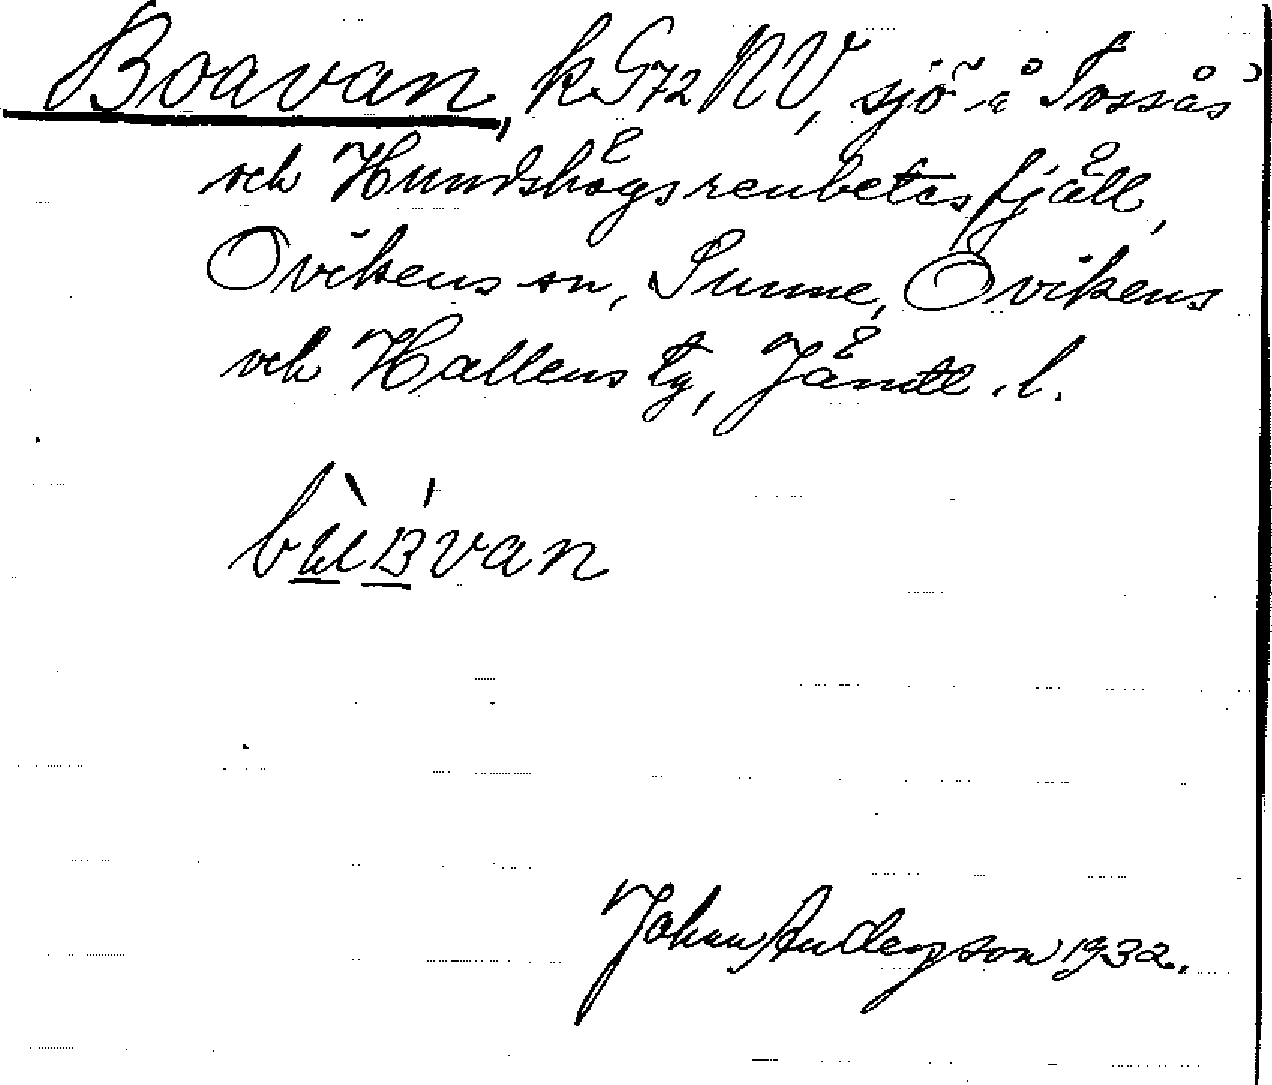 Boavan, kG72NV, sjö i Tossås
och Hundshögsrenbetesfjäll,
Ovikens sn, Sunne, Ovikens
och Hallens tg, Jämtl. l.
Johan Anderson 1932.